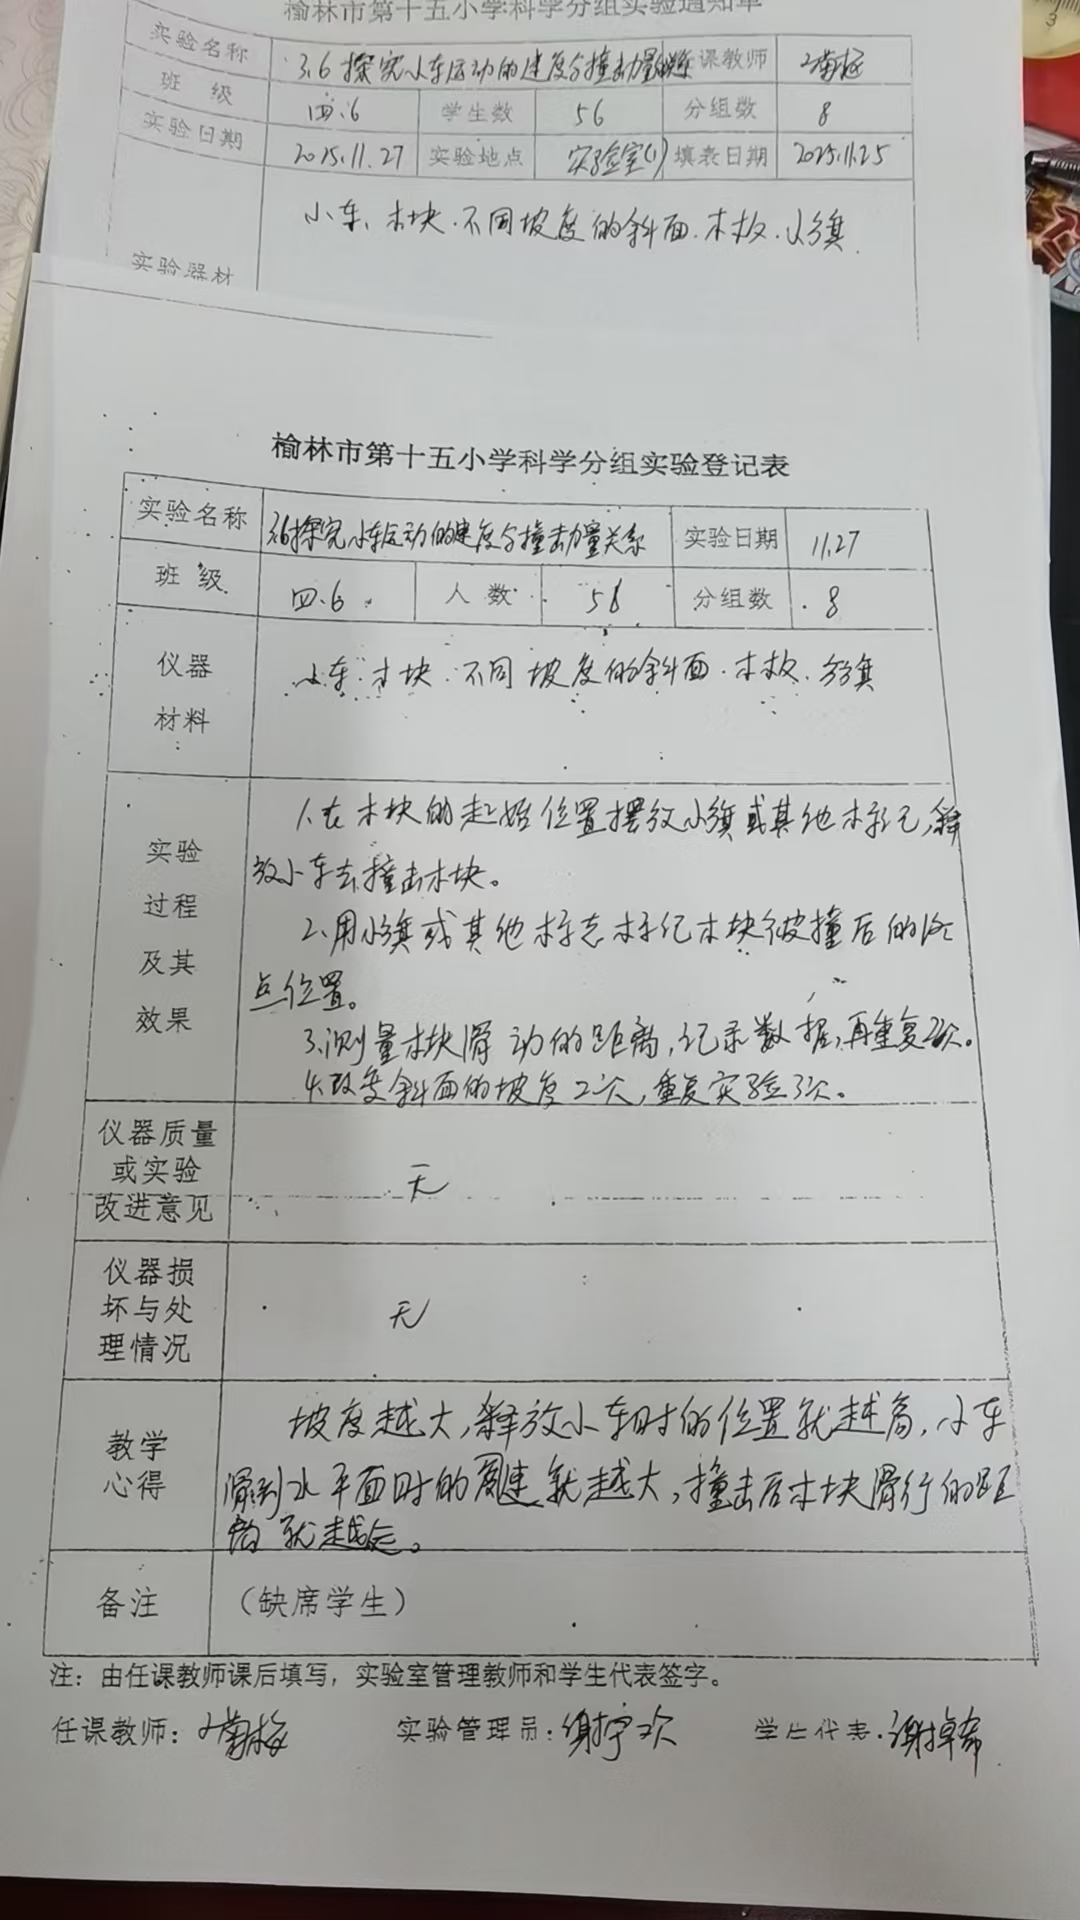 榆林市第十五小学科学分组实验通知单
实验名称 3.6探究小车运动的速度与撞击力量关系 任课教师
班 级 四.6 学生数 56 分组数 8
实验日期 2025.11.27 实验地点 实验室(1) 填表日期 2025.11.25
实验器材 小车、木块.不同坡度的斜面.木板.小旗
榆林市第十五小学科学分组实验登记表
实验名称 3.6探究小车运动的速度与撞击力量关系 实验日期 11.27
班 级 四.6 人 数 56 分组数 8
仪器 小车.木块.不同坡度的斜面.木板.小旗
材料
实验 1.在木块的起始位置摆放小旗或其他标记,释
放小车去撞击木块。
过程 2.用小旗或其他标志标记木块被撞后的终
及其 点位置。
效果 3.测量木块滑动的距离,记录数据,再重复2次。
4.改变斜面的坡度2次,重复实验3次。
仪器质量
或实验 无
改进意见
仪器损
坏与处 无
理情况
坡度越大,释放小车时的位置就越高,小车
教学 滑到水平面时的速就越大,撞击后木块滑行的距
心得 离就越远。
备注 (缺席学生)
注：由任课教师课后填写，实验室管理教师和学生代表签字。
任课教师： 实验管理员： 学生代表：